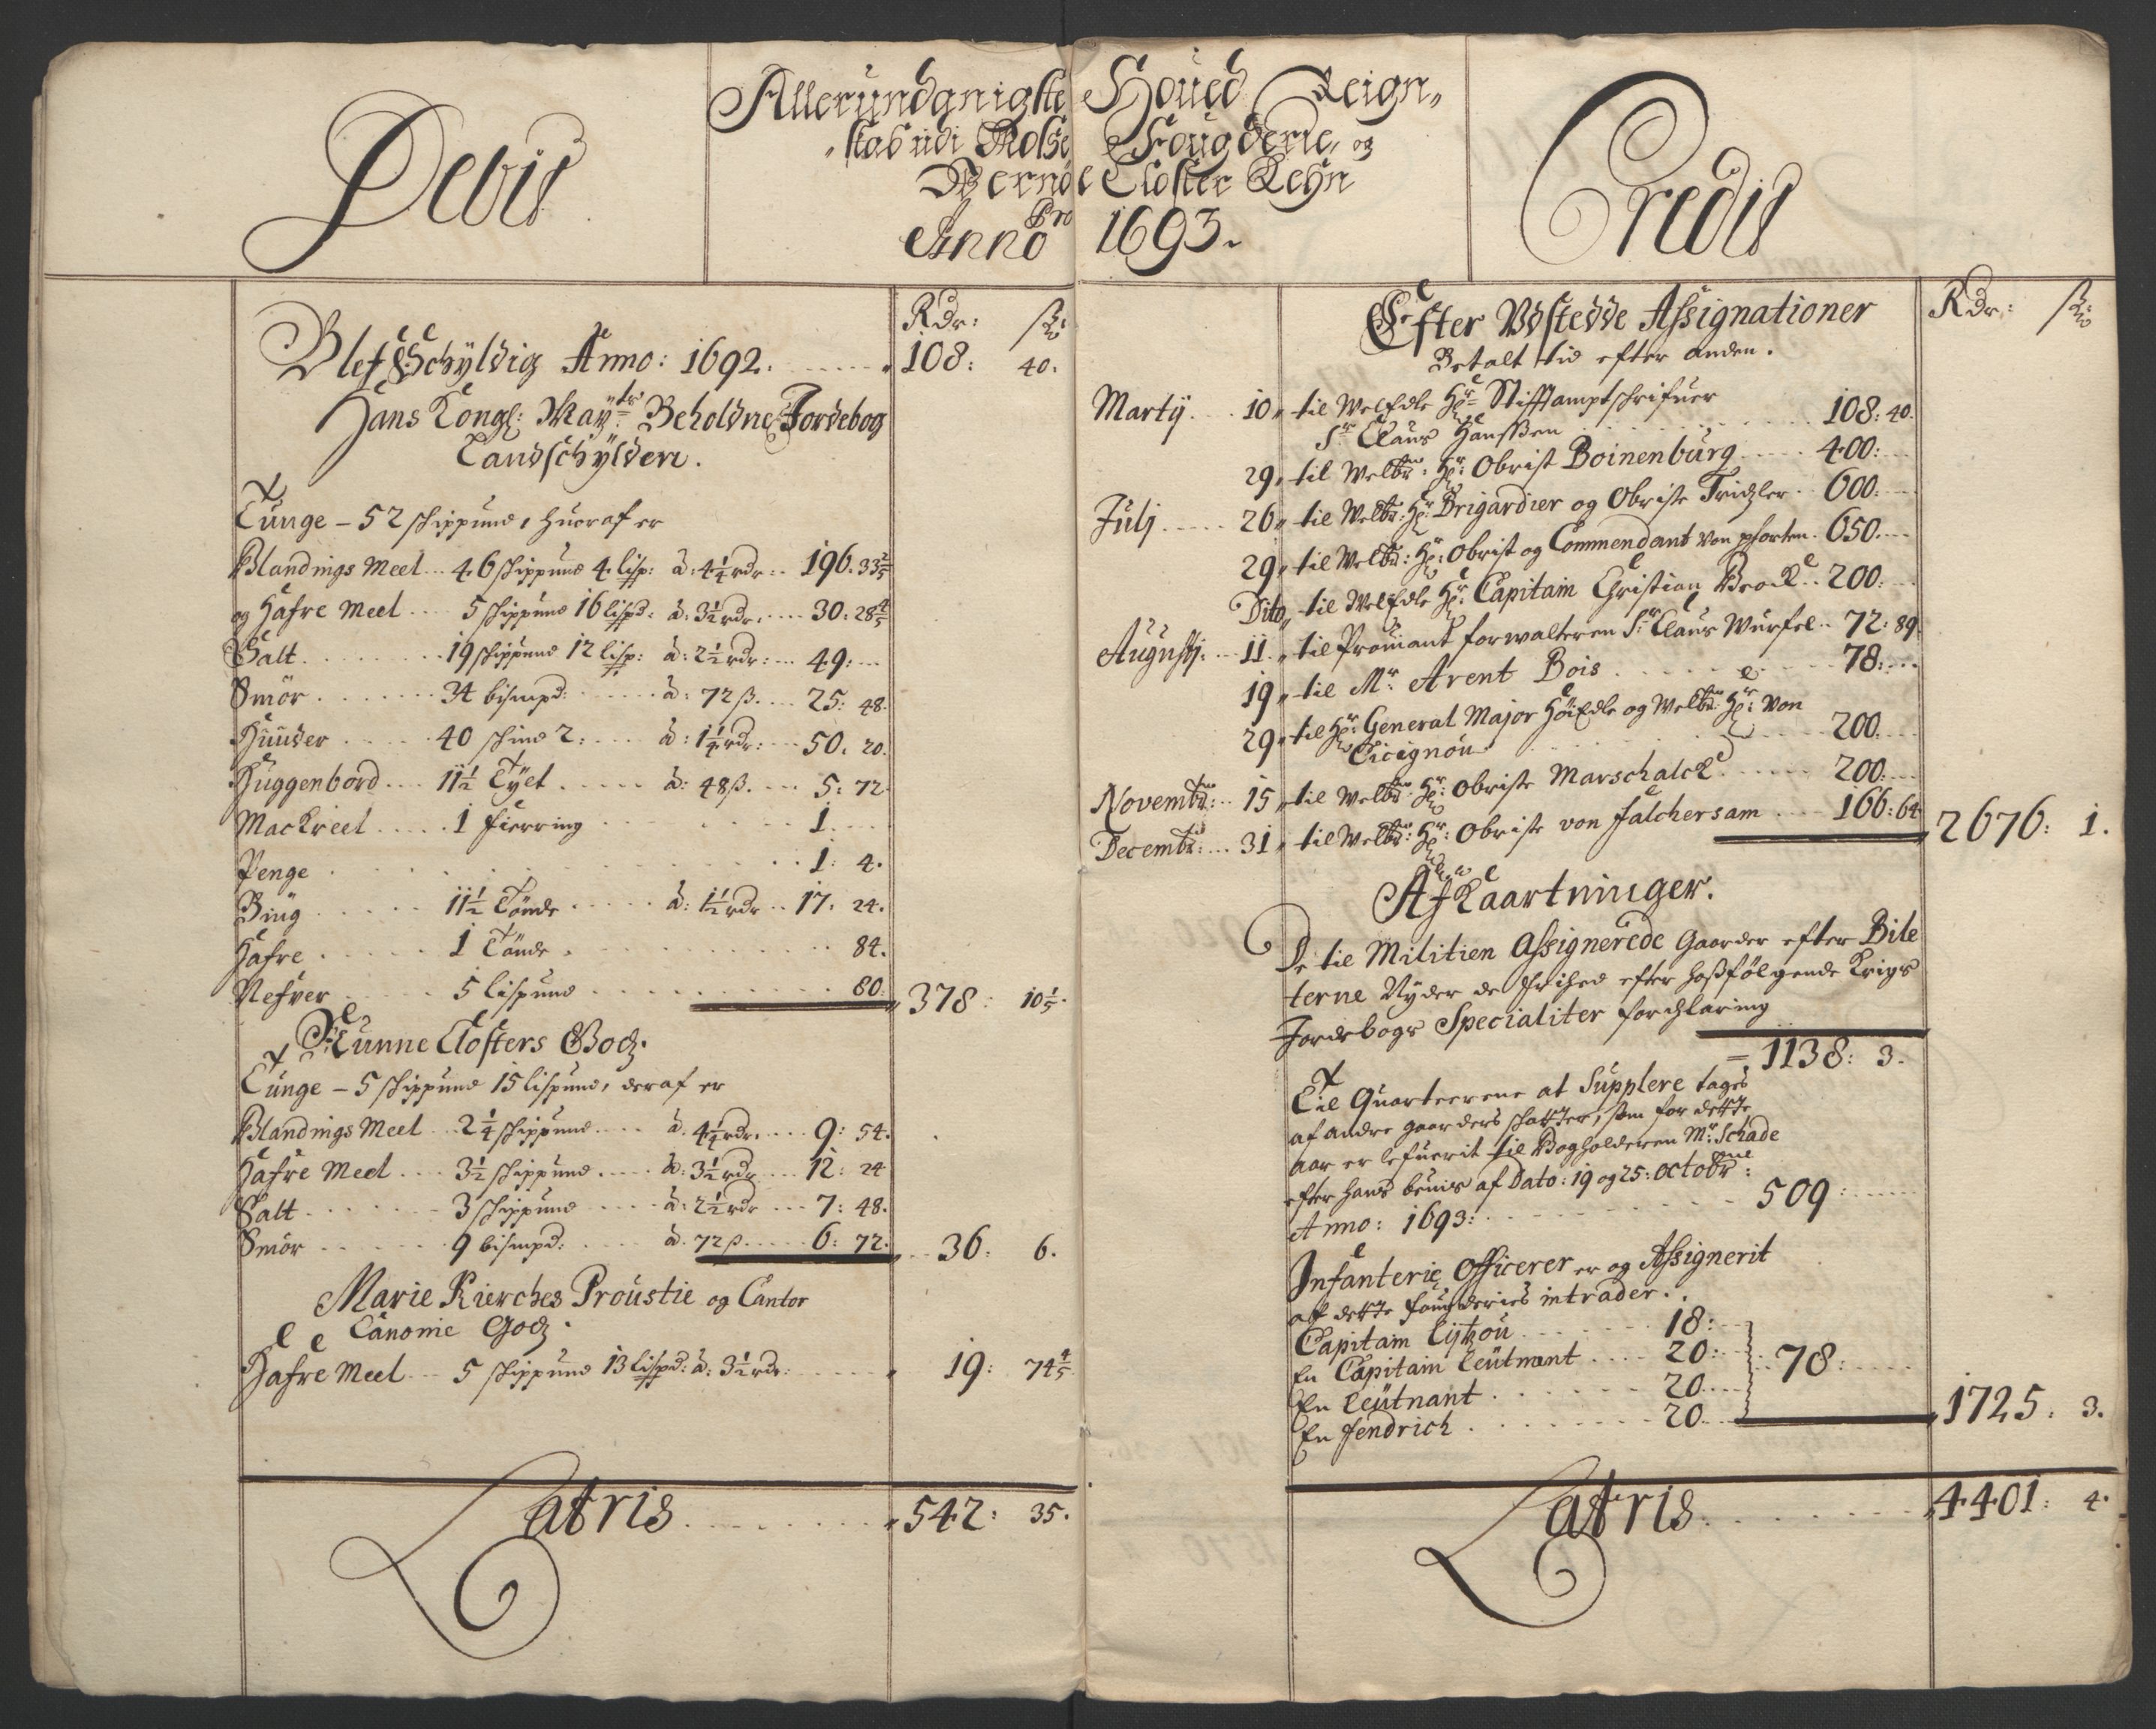 Debit
Allerundgnigste Houed Reign„
„skab udi Mosse Fougderie, og
Wernøe Closter Lehn
Pro
Anno 1693.
Credit
Rdr: ß:
Blef Schÿldig Anno: 1692. 108: 40.
Hans Kongl: Maÿtz Beholdne Jordebog
Landschÿlden.
Tunge - 52 schippund, huoraf er
Blandings Meel 46 schippund 4 lisp: à: 4¼ rdr: 196. 33⅗
og Hafre Meel 5 schippund 16 lispd: à: 3½ rdr. 30: 28⅘
Salt 19 schippund 12 lisp: à: 2½ rdr: 49:
Smör 34 bismpd: à: 72 ß. 25: 48.
Huuder 40 schind à: 1¼ rdr: 50. 20.
Huggenbord 11½ Tÿlt à: 48 ß. 5: 72
Mackreel 1 fierring 1.
Penge 1: 4.
Biug 11½ Tönde à: 1½ rdr 17. 24.
Hafre 1 Tönde 84.
Nefver 5 lispund 80.
378: 10⅕.
Nunne Closters Godz.
Tunge - 5 schippund 15 lispund, deraf er
Blandings Meel 2¼ schippund à. 4¼ rdr. 9: 54.
Hafre Meel 3½ schippund à: 3½ rdr 12: 24
Salt 3 schippund à: 2½ rdr 7: 48.
Smör 9 bismpd: à. 72 ß 6: 72.
36: 6.
Marie Kierches Proustie og Cantor
Canonie Godz.
Hafre Meel 5 schippund 13 lispd: à: 3½ rdr: 19: 74⅘
Latris 542: 35.
Rdr: ß:
Efter Udstedde Assignationer
Betalt tid efter anden.
Martÿ 10 til WelEdle Hr: Stifftamptschrifuer
Sr. Claus Hanssen 108: 40.
29 til Welbr: Hr: Obrist Boinenburg 400:
Julj 26 til Welbr: Hr: Brigardier og Obriste Tridzler 600:
29 til Welbr: Hr: Obrist og Commendant von pforten. 650.
Dito til WelEdle Hr: Capitain Christian Brock 200:
Augustj: 11 til Proviant forwalteren Sr. Claus Wurfel 72: 89.
19 til Mr. Arent Bois 78:
29 til Hr: General Major HöiEdle og Welbr: Hr: von
Cicignon 200.
Novembr: 15 til Welbr: Hr: Obriste Marschalck 200:
Decembr: 31 til Welbr: Hr: Obriste von falchersam 166: 64
2676: 1.
Af Kaartninger.
De til Militien Assignerede Gaarder efter Bile
terne Nÿder de frihed efter hoßfölgende Krigs
Jordebogs Specialiter forchlaring
1138: 3.
Til Quarteerene at Supplere tages
af andre gaarders schatter, som for dette
aar er lefuerit til Bogholderen Mr: Schade
efter hans beuis af Dato: 19 og 25: Octobr:
Anno: 1693: 509:
Infanterie Officerer er og Assignerit
aff dette fougderies intrader.
Capitain Lÿtzou 18:
En Capitain leütnant 20:
En leütnant 20
En fendrich 20
78:
1725: 3.
Latris 4401: 4.